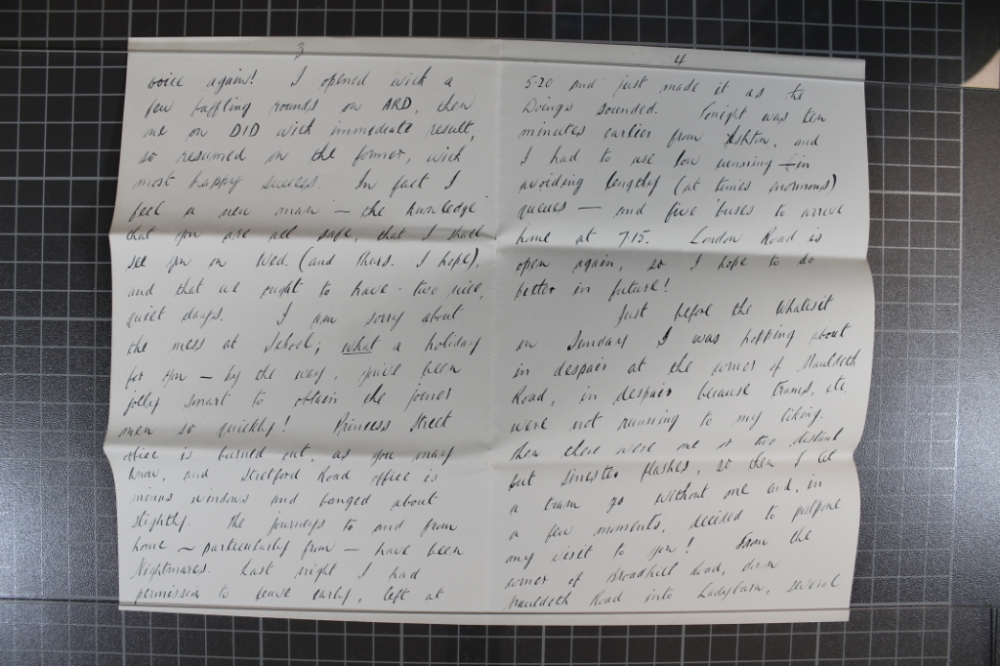 3
voice again! I opened with a
few baffling rounds on ARD, then
me on DID with immediate result,
so resumed on the former, with
most happy success. In fact I
feel a new man — the knowledge
that you are all safe, that I shall
see you on Wed. (and Thurs. I hope),
and that we ought to have two nice,
quiet days. I am sorry about
the mess at School; what a holiday
for you — by the way, you've been
jolly smart to obtain the joiner
men so quickly! Princess Street
office is burned out, as you may
know, and Stretford Road office is
minus windows and banged about
slightly. The journeys to and from
home — particularly from — have been
Nightmares. Last night I had
permission to leave early, left at
4
5-20 and just made it as the
Doings sounded. Tonight was ten
minutes earlier from Ashton, and
I had to use low cunning in
avoiding lengthy (at times enormous)
queues — and five 'buses to arrive
home at 7.15. London Road is
open again, so I hope to do
better in future!
Just before the Whatisit
on Sunday I was hopping about
in despair at the corner of Mauldeth
Road, in despair because trams, etc.
were not running to my liking.
Then there were one or two distant
but sinister flashes, so then I let
a tram go without me and, in
a few moments, decided to postpone
my visit to you! From the
corner of Broadhill Road, down
Mauldeth Road into Ladybarn, several